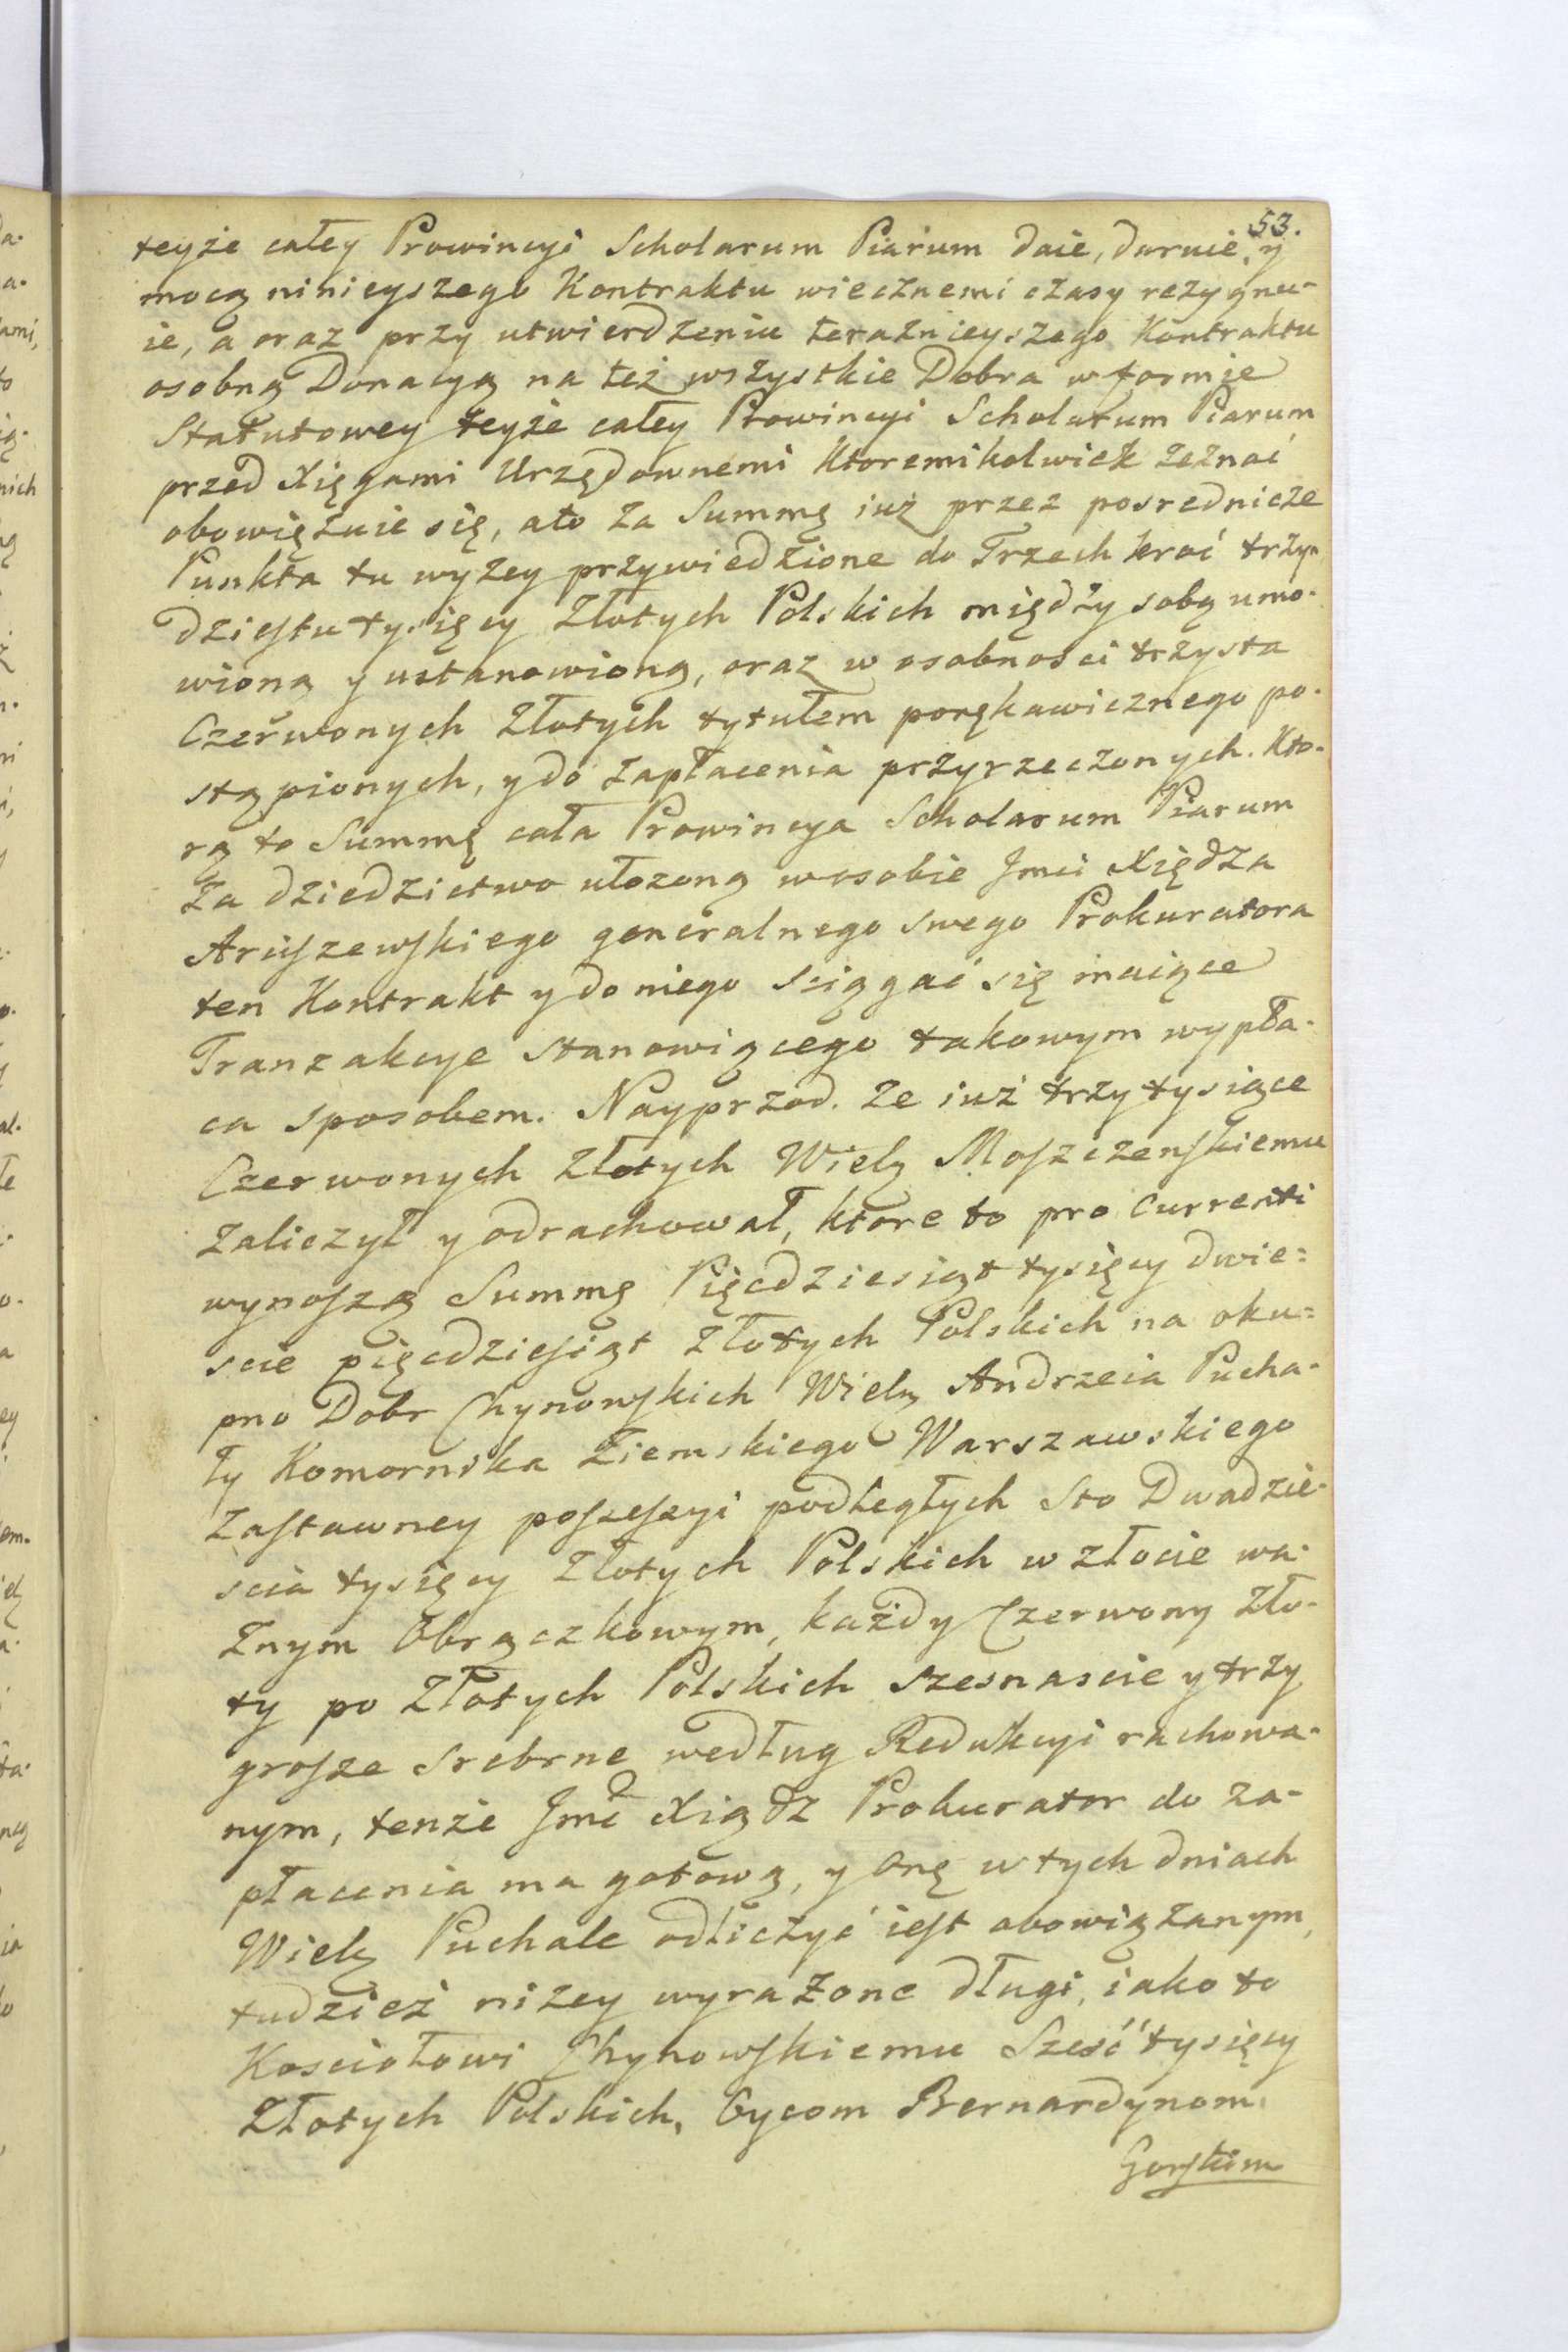 53.
teyże całey Prowincyi Scholarum Piarum daie, daruie, y
mocą ninieyszego Kontraktu wiecznemi czasy rezygnu-
ie, a oraz przy utwierdzeniu teraznieyszego Kontraktu
osobną Donacyą na też wszystkie Dobra w formie
Statutowey teyże całey Prowincyi Scholarum Piarum
przed Xięgami Urzędownemi Ktoremikolwiek zeznać
obowięzuie się, a to za Summę iuż przez posrednicze
Punkta tu wyżey przywiedzione do Trzech kroć trzy-
dziestu tysięcy Złotych Polskich między sobą umo-
wioną y ustanowioną, oraz w osobnosci trzysta
Czerwonych Złotych tytułem porękawicznego po-
stąpionych, y do zapłacenia przyrzeczonych. Kto-
rą to Summę cała Prowincya Scholarum Piarum
Za dziedzictwo ułozoną w osobie Jmci Xiędza
Aruszewskiego generalnego swego Prokuratora
ten Kontrakt y do niego sciągać się maiące
Tranzakcye stanowiącego takowym wypła-
ca sposobem. Nayprzod. Ze iuż trzy tysiące
Czerwonych Złotych Wielą Moszczenskiemu
zaliczył y odrachował, ktore to pro Currenti
wynoszą Summę Pięcdziesiąt tysięcy dwie=
scie pięcdziesiąt Złotych Polskich na oku=
pno Dobr Chynowskich Wielą Andrzeia Pucha-
ły Komornika Ziemskiego Warszawskiego
Zastawney possessyi podległych Sto Dwadzie-
scia tysięcy Złotych Polskich w złocie wa-
żnym Obrączkowym, każdy Czerwony Zło-
ty po Złotych Polskich szesnascie y trzy
grosze srebrne według Redukcyi rachowa-
nym, tenże Jmć Xiądz Prokurator do za-
płacenia ma gotową, y onę w tych dniach
Wielą Puchale odliczyć iest obowiązanym,
tudzież niżey wyrażone długi, iako to
Kosciołowi Chynowskiemu Sześć tysięcy
Złotych Polskich, Oycom Bernardynom
Gorskim